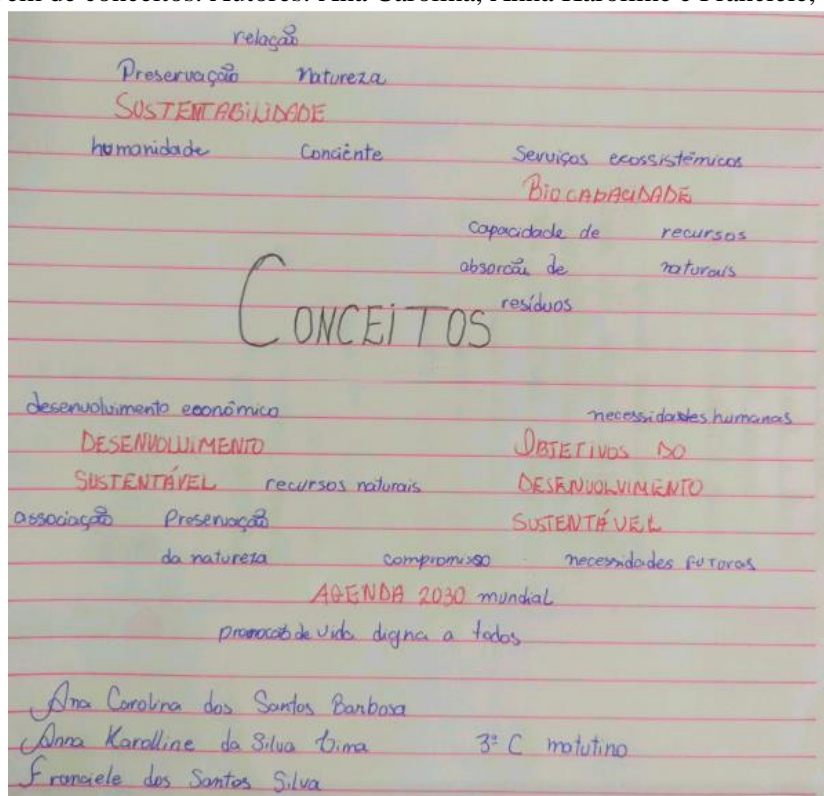 em de conceitos. Autores: Ana Carolina, Anna Karolline e Franciele,
relação
Preservação natureza
SUSTENTABILIDADE
humanidade Conciênte
Serviços ecossistêmicos
BIOCAPACIDADE
capacidade de recursos
absorcão de naturais
resíduos
CONCEITOS
desenvolvimento econômico
necessidades humanas
DESENVOLVIMENTO
OBJETIVOS DO
SUSTENTÁVEL recursos naturais
DESENVOLVIMENTO
associação Preservação
SUSTENTÁVEL
da natureza compromisso necessidades futoras
AGENDA 2030 mundial
promocão de vida digna a todos
Ana Carolina dos Santos Barbosa
Anna Karolline da Silva Lima 3º C matutino
Franciele dos Santos Silva